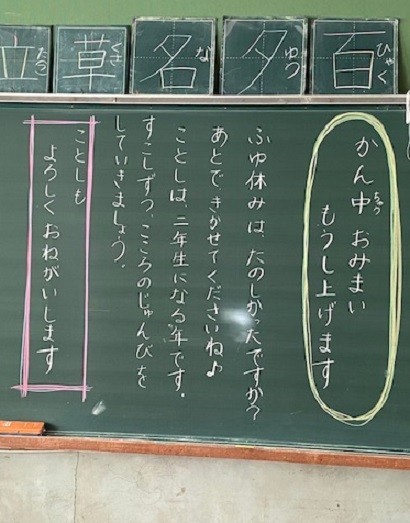 百
ひゃく
夕
ゆう
名
な
草
くさ
立
たつ
かん中おみまい
ちゅう
もうし上げます
ふゆ休みはたのしかったですか?
あとできかせてくださいね♪
ことしは、二年生になる年です。
すこしずつ、こころのじゅんびを
していきましょう。
ことしも
よろしくおねがいします